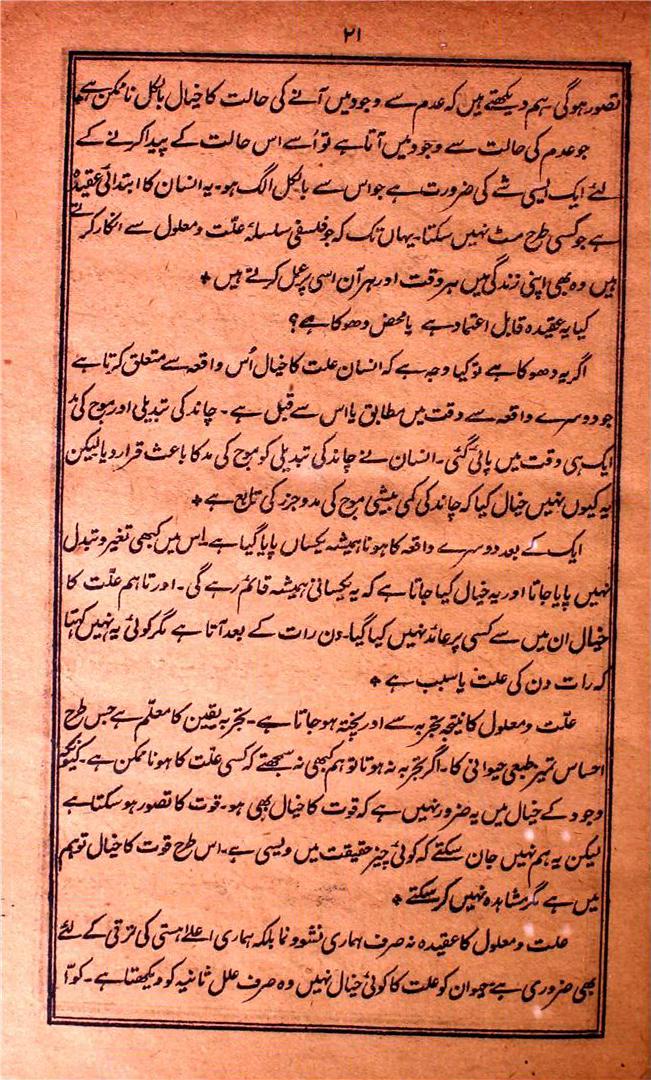 ۲۱
تصور ہوگی۔ ہم دیکھتے ہیں کہ عدم سے وجود میں آنے کی حالت کا خیال بالکل ناممکن ہے۔
جو عدم کی حالت سے وجود میں آتا ہے تو اُسے اس حالت کے پیدا کرنے کے
لئے ایک ایسی شے کی ضرورت ہے جو اس سے بالکل الگ ہو۔ یہ انسان کا ابتدائی عقیدہ
ہے جو کسی طرح مٹ نہیں سکتا۔ یہاں تک کہ جو فلسفی سلسلۂ علّت و معلول سے انکار کرتے
ہیں وہ بھی اپنی زندگی میں ہر وقت اور ہر آن اسی پر عمل کرتے ہیں ٭
کیا یہ عقیدہ قابل اعتماد ہے یا محض دھوکا ہے؟
اگر یہ دھوکا ہے تو کیا وجہ ہے کہ انسان علت کا خیال اُس واقعہ سے متعلق کرتا ہے
جو دوسرے واقعہ سے وقت میں مطابق یا اس سے قبل ہے۔ چاند کی تبدیلی اور موج کی مد
ایک ہی وقت میں پائی گئی۔ انسان نے چاند کی تبدیلی کو موج کی مد کا باعث قرار دیا لیکن
یہ کیوں نہیں خیال کیا کہ چاند کی کمی بیشی موج کی مدوجزر کی تابع ہے ٭
ایک کے بعد دوسرے واقعہ کا ہونا ہمیشہ یکساں پایا گیا ہے۔ اس میں کبھی تغیر و تبدل
نہیں پایا جاتا اور یہ خیال کیا جاتا ہے کہ یہ یکسانی ہمیشہ قائم رہے گی۔ اور تاہم علّت کا
خیال ان میں سے کسی پر عائد نہیں کیا گیا۔ دن رات کے بعد آتا ہے مگر کوئی یہ نہیں کہتا
کہ رات دن کی علت یا سبب ہے ٭
علّت و معلول کا نتیجہ تجربہ سے اور پختہ ہو جاتا ہے۔ تجربہ یقین کا معلّم ہے جس طرح
احساس تمیز طبعی حیوانی کا۔ اگر تجربہ نہ ہوتا تو ہم کبھی نہ سمجھتے کہ کسی علّت کا ہونا ممکن ہے۔ کیونکہ
وجود کے خیال میں یہ ضرور نہیں ہے کہ قوت کا خیال بھی ہو۔ قوت کا تصور ہو سکتا ہے
لیکن یہ ہم نہیں جان سکتے کہ کوئی چیز حقیقت میں ویسی ہے۔ اس طرح قوت کا خیال تو ہم
میں ہے مگر مشاہدہ نہیں کر سکتے ٭
علت و معلول کا عقیدہ نہ صرف ہماری نشوونما بلکہ ہماری اعلےٰ ہستی کی ترقی کے لئے
بھی ضروری ہے۔ حیوان کو علت کا کوئی خیال نہیں وہ صرف علل ثانیہ کو دیکھتا ہے۔ کوّا